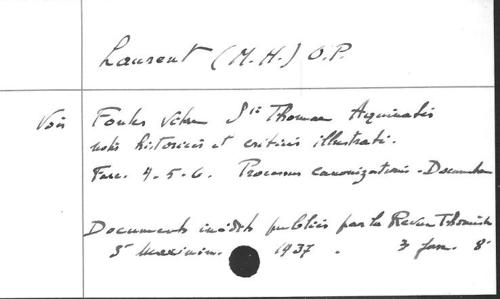 Laurent (M.H.) O.P.
Voir Fontes Vitae Sti Thomae Aquinatis
notis historicis et criticis illustrati.
Fasc. 4-5-6. Processus canonizationis - Documenta
Documents inédits publiés par la Revue Thomiste
St Maximin. 1937. 3 fasc. 8°